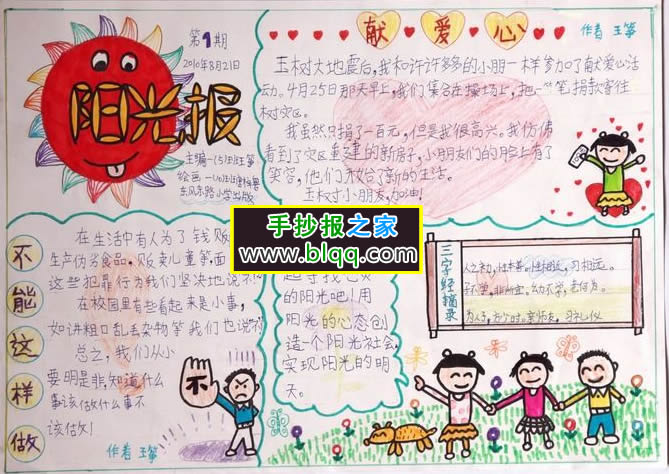 第1期
2010年8月21日
阳光报
东风东路小学出版
献爱心
作者 王筝
玉树大地震后,我和许许多多的小朋一样参加了献爱心活
动。4月25日那天早上,我们集合在操场上,把一笔捐款寄往
树灾区。
我虽然只捐了一百元,但是我很高兴。我仿佛
看到了灾区重建的新房子,小朋友们的脸上有了
笑容,他们开始了新的生活。
玉树小朋友,加油!
不能这样做
在生活中有人为了钱贩
生产伪劣食品,贩卖儿童等,面
这些犯罪行为我们坚决地说不
在校园里有些看起来是小事,
如讲粗口乱丢杂物等我们也说不
总之,我们从小
要明是非,知道什么
事该做什么事不
该做!
作者 王筝
不
手抄报之家
www.blqq.com
的阳光吧!用
阳光的心态创
造一个阳光社会,
实现阳光的明
天。
三字经摘录
人之初,性本善。性相近,习相远。
子不学,非所宜。幼不学,老何为。
为人子,方少时。亲师友,习礼仪